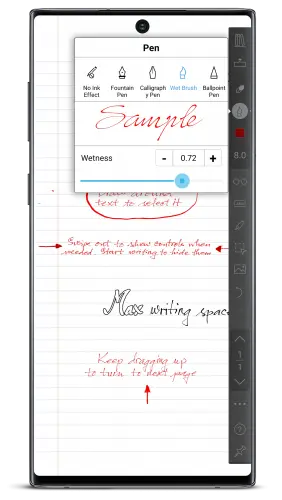 Pen
No Ink Effect
Fountain Pen
Calligraph y Pen
Wet Brush
Ballpoint Pen
Sample
Wetness - 0.72 +
8.0
text to select it
Swipe out to show controls when
needed. Start writing to hide them
Max writing space
Keep dragging up
to turn to next page
1
1